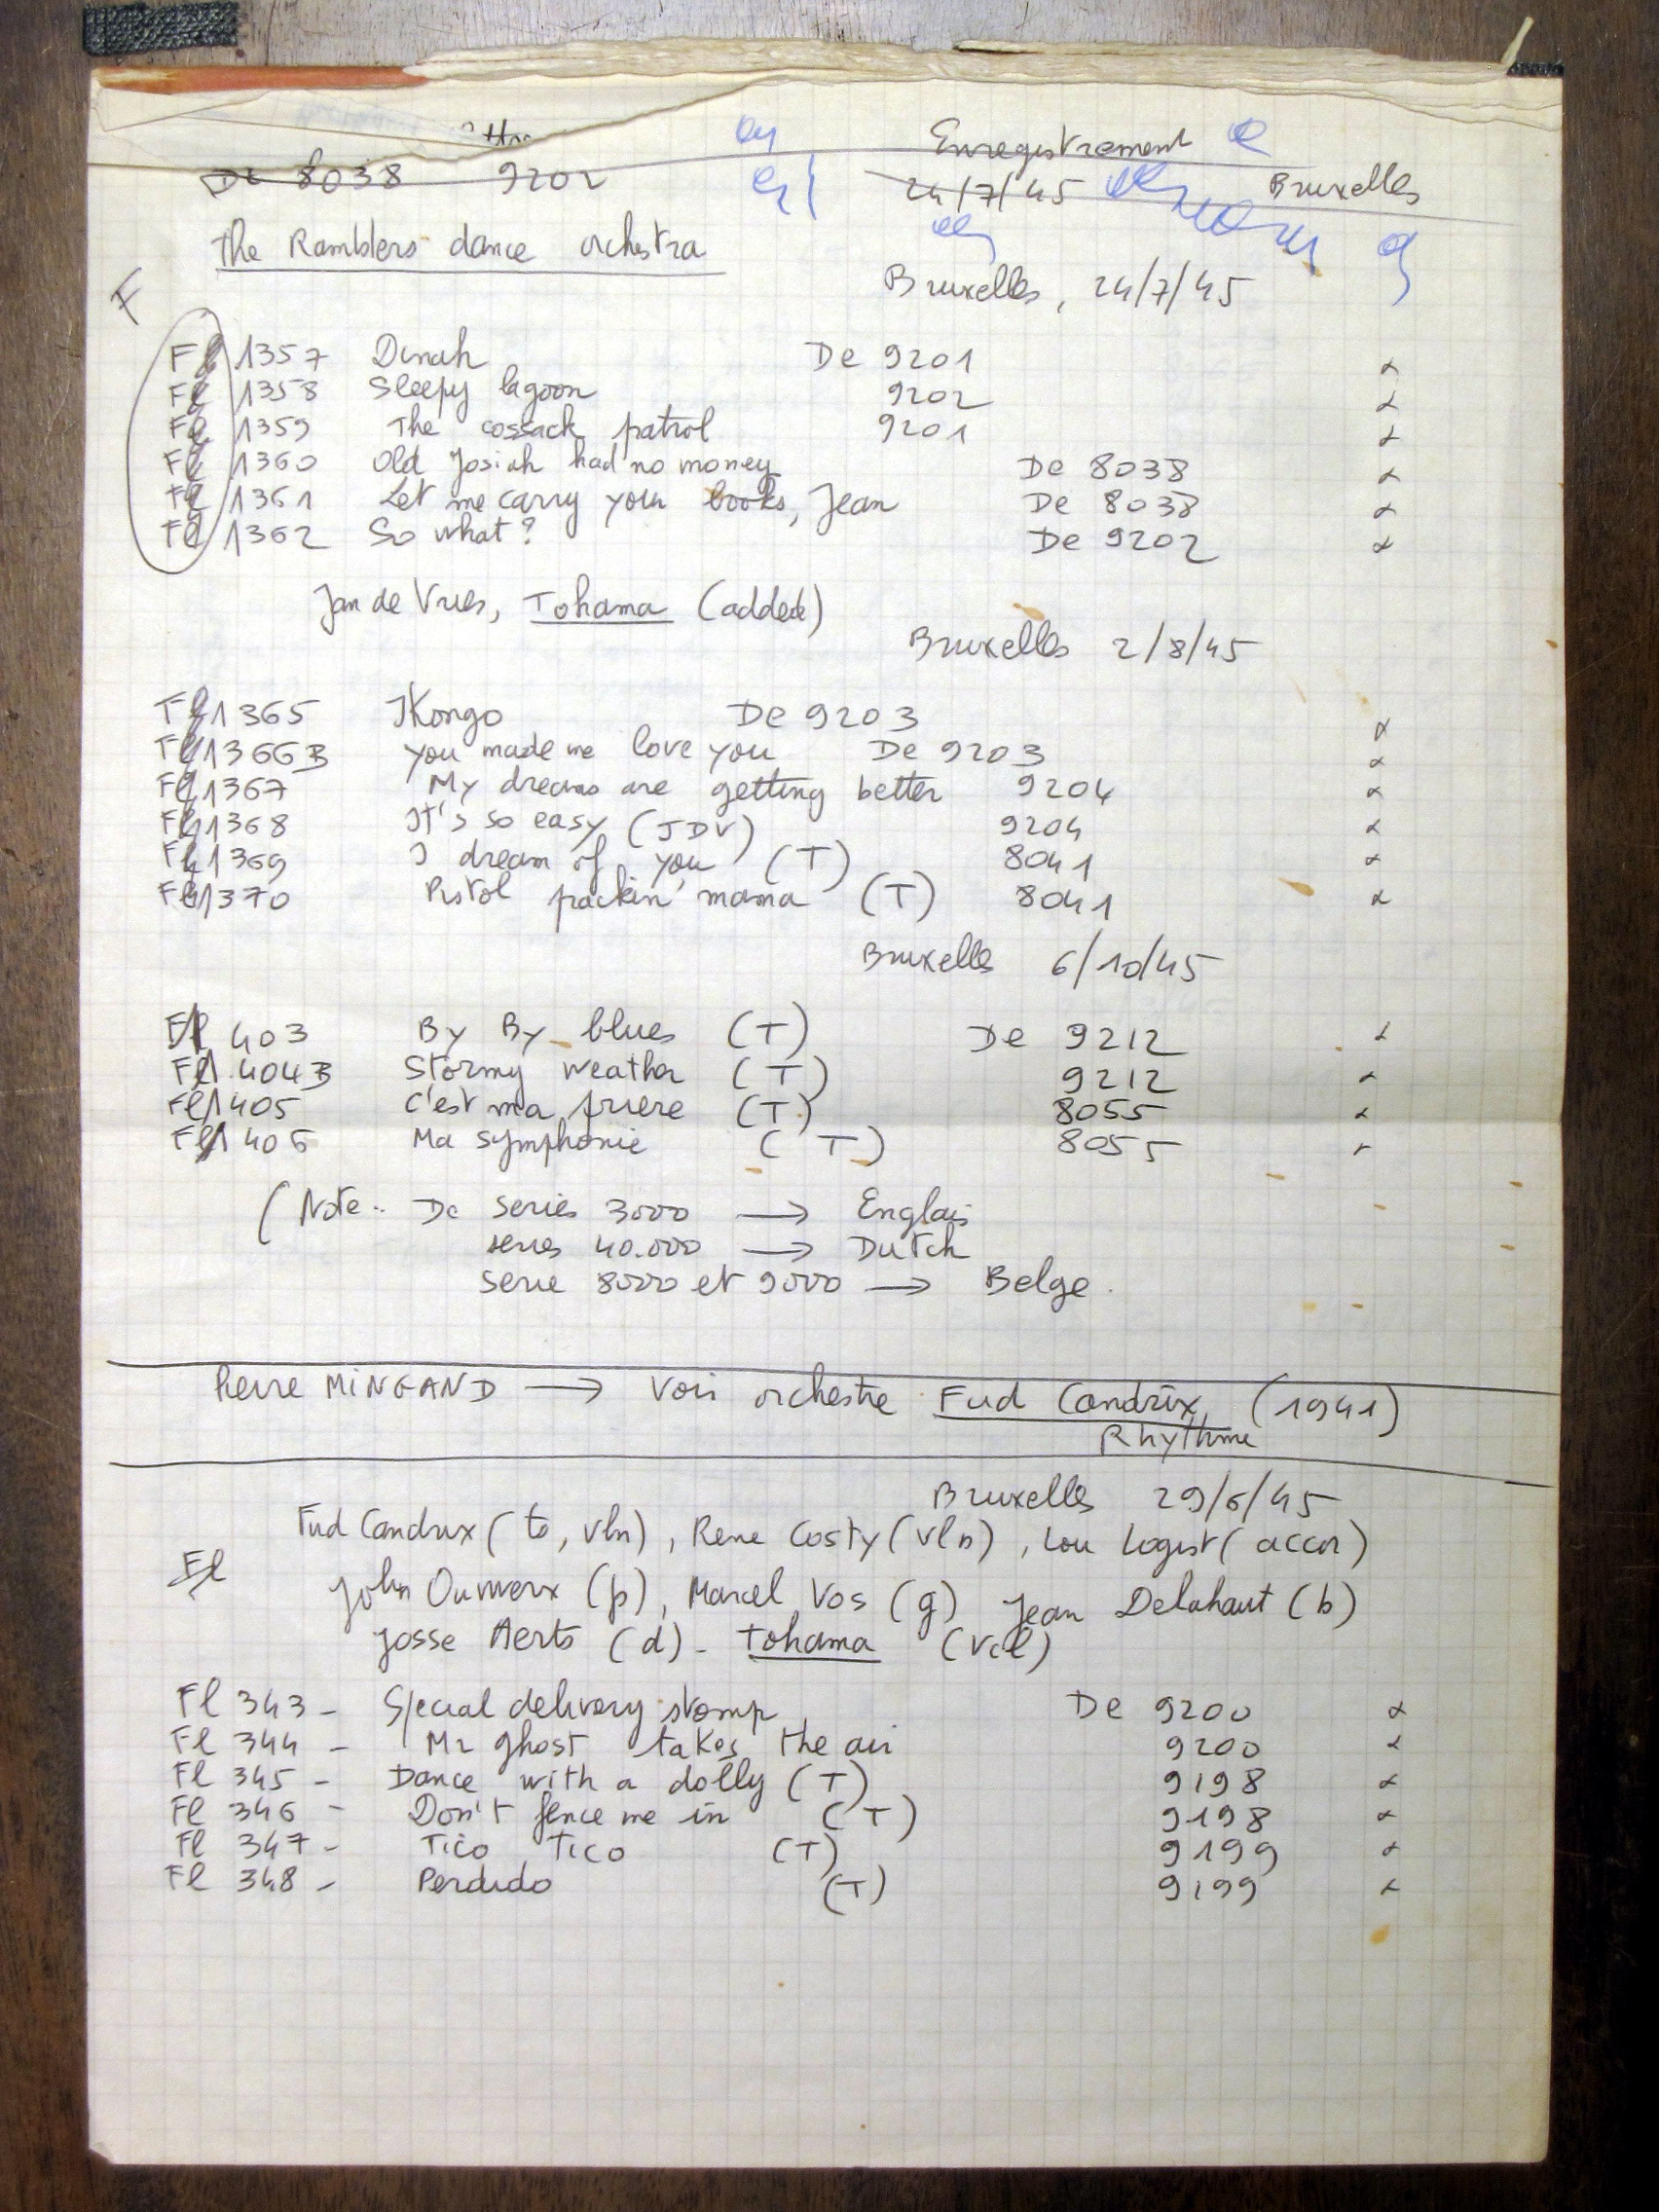 Enregistrement
De 8038 9202 24/7/45 Bruxelles
The Ramblers dance orchestra
Bruxelles, 24/7/45
F
Fl 1357 Dinah De 9201 x
Fl 1358 Sleepy lagoon 9202 x
Fl 1359 The cossack patrol 9201 x
Fl 1360 Old Josiah had no money De 8038 x
Fl 1361 Let me carry your books, Jean De 8038 x
Fl 1362 So what? De 9202 x
Jan de Vries, Tohama (added)
Bruxelles 2/8/45
Fl 1365 Kongo De 9203 x
Fl 1366B You made me love you De 9203 x
Fl 1367 My dreams are getting better 9204 x
Fl 1368 It's so easy (JDV) 9204 x
Fl 1369 I dream of you (T) 8041 x
Fl 1370 Pistol packin' mama (T) 8041 x
Bruxelles 6/10/45
Fl 403 By By blues (T) De 9212 x
Fl 1404B Stormy weather (T) 9212 x
Fl 1405 C'est ma prière (T) 8055 x
Fl 1406 Ma symphonie (T) 8055 x
(Note: De series 3000 → Englais
series 40.000 → Dutch
serie 8000 et 9000 → Belge.
Pierre MiNGAND → Voir orchestre Fud Candrix (1941)
Rhythme
Bruxelles 29/6/45
Fud Candrix (to, vln), Rene Costy (vln), Lou Logist (accor)
Fl John Ouwerx (p), Marcel Vos (g) Jean Delahaut (b)
Josse Aerts (d) - Tohama (vcl)
Fl 343 - Special delivery stomp De 9200 x
Fl 344 - Mr ghost takes the air 9200 x
Fl 345 - Dance with a dolly (T) 9198 x
Fl 346 - Don't fence me in (T) 9198 x
Fl 347 - Tico Tico (T) 9199 x
Fl 348 - Perdido (T) 9199 x